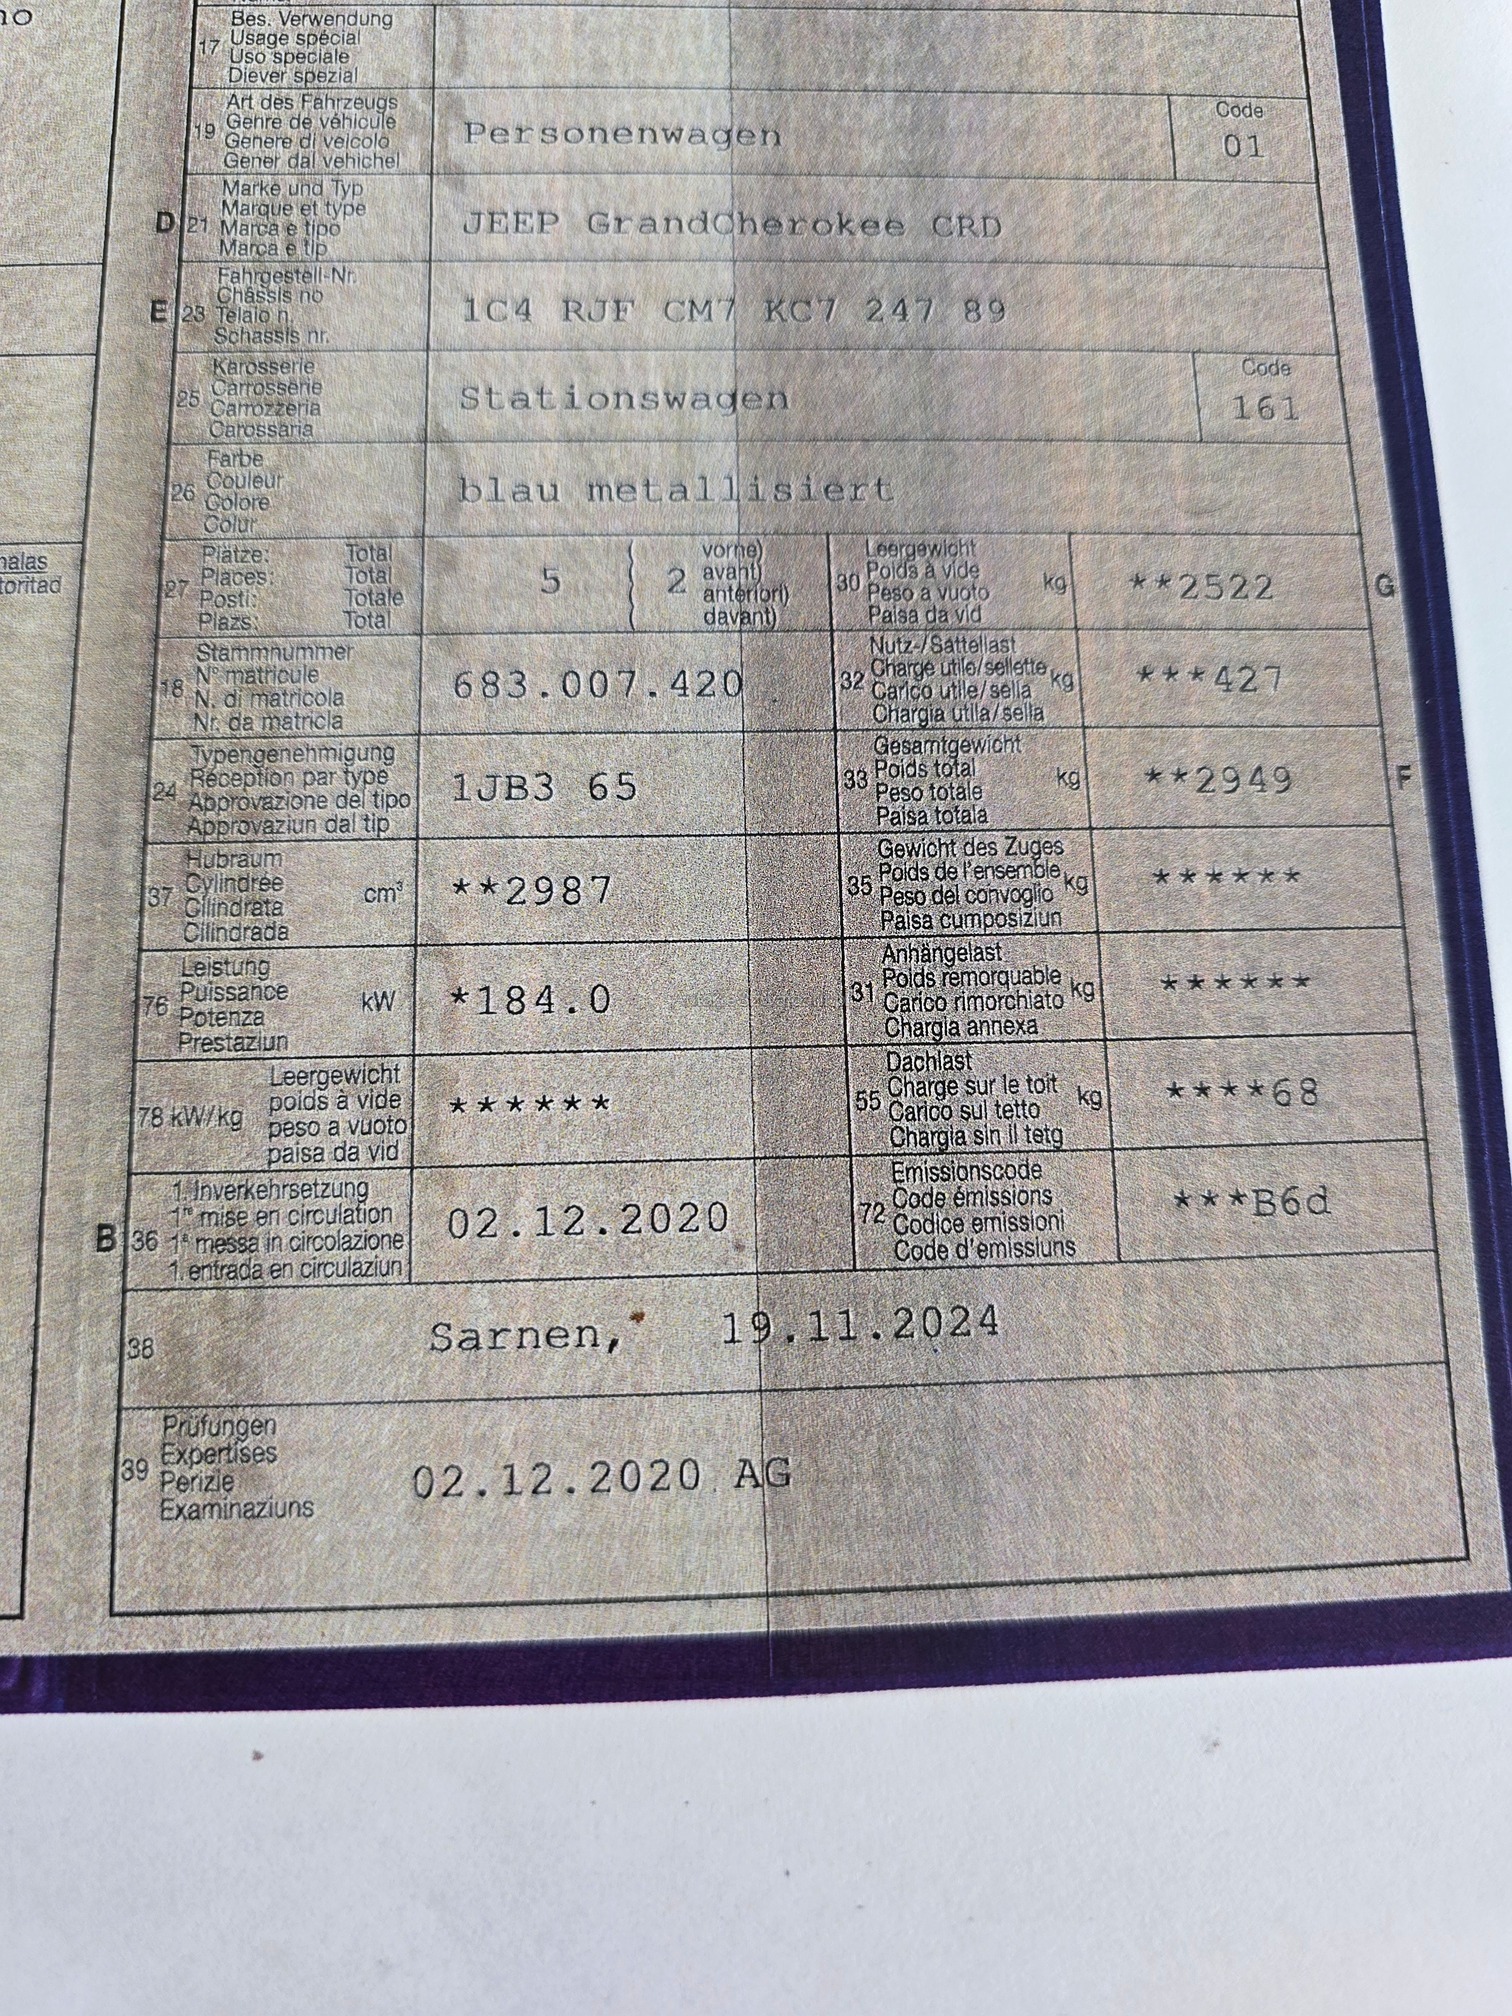 17 Bes. Verwendung
Usage spécial
Uso speciale
Diever spezial
19 Art des Fahrzeugs
Genre de véhicule
Genere di veicolo
Gener dal vehichel
Personenwagen
Code
01
D 21 Marke und Typ
Marque et type
Marca e tipo
Marca e tip
JEEP GrandCherokee CRD
E 23 Fahrgestell-Nr.
Châssis no
Telaio n.
Schassis nr.
1C4 RJF CM7 KC7 247 89
25 Karosserie
Carrosserie
Carrozzeria
Carossaria
Stationswagen
Code
161
26 Farbe
Couleur
Colore
Colur
blau metallisiert
27 Plätze: Total
Places: Total
Posti: Totale
Plazs: Total
5 ( 2 vorne)
avant)
anteriori)
davant)
30 Leergewicht
Poids à vide
Peso a vuoto
Paisa da vid
kg **2522 G
18 Stammnummer
N° matricule
N. di matricola
Nr. da matricla
683.007.420
32 Nutz-/Sattellast
Charge utile/sellette
Carico utile/sella
Chargia utila/sella
kg ***427
24 Typengenehmigung
Réception par type
Approvazione del tipo
Approvaziun dal tip
1JB3 65
33 Gesamtgewicht
Poids total
Peso totale
Paisa totala
kg **2949 F
37 Hubraum
Cylindrée
Cilindrata
Cilindrada
cm³ **2987
35 Gewicht des Zuges
Poids de l'ensemble
Peso del convoglio
Paisa cumposiziun
kg ******
76 Leistung
Puissance
Potenza
Prestaziun
kW *184.0
31 Anhängelast
Poids remorquable
Carico rimorchiato
Chargia annexa
kg ******
78 kW/kg Leergewicht
poids à vide
peso a vuoto
paisa da vid
******
55 Dachlast
Charge sur le toit
Carico sul tetto
Chargia sin il tetg
kg ****68
B 36 1. Inverkehrsetzung
1re mise en circulation
1a messa in circolazione
1. entrada en circulaziun
02.12.2020
72 Emissionscode
Code émissions
Codice emissioni
Code d'emissiuns
***B6d
38 Sarnen, 19.11.2024
39 Prüfungen
Expertises
Perizie
Examinaziuns
02.12.2020 AG